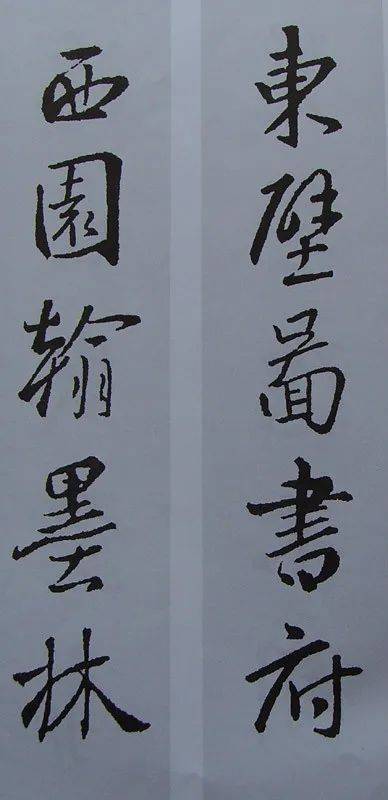 東壁啚書府
西園翰墨林